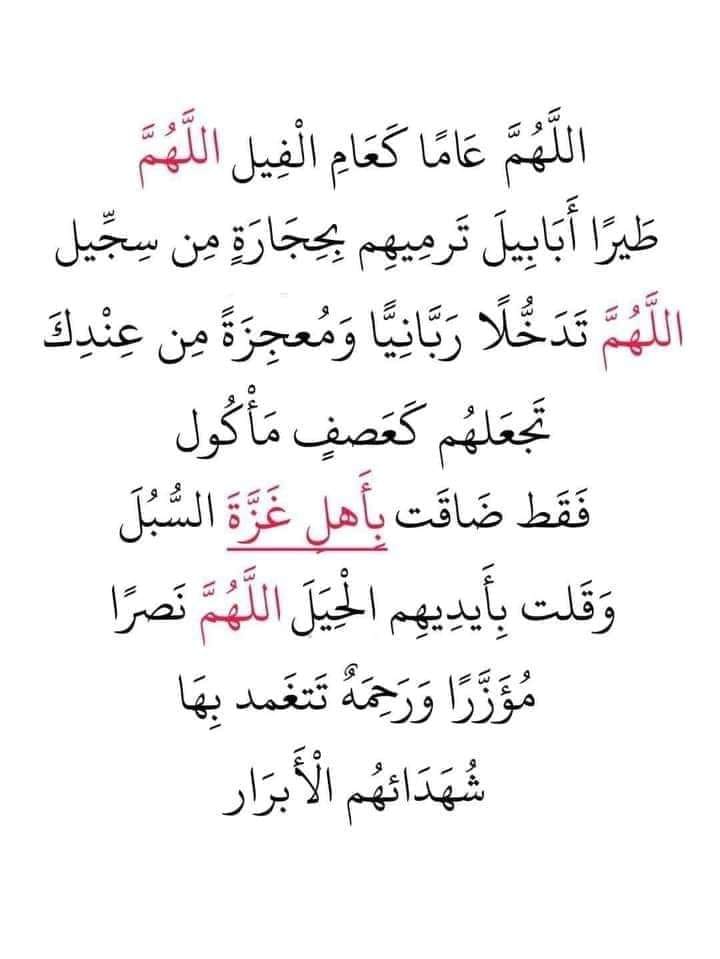 اللَّهُمَّ عَامًا كَعَامِ الْفِيل اللَّهُمَّ
طَيرًا أَبَابِيلَ تَرمِيهِم بِحِجَارَةٍ مِن سِجِّيل
اللَّهُمَّ تَدَخُّلًا رَبَّانِيًّا وَمُعجِزَةً مِن عِنْدِكَ
تَجعَلهُم كَعَصفٍ مَأْكُول
فَقَط ضَاقَت بِأَهلِ غَزَّةَ السُّبُلَ
وَقَلت بِأَيدِيهِم الْحِيَلَ اللَّهُمَّ نَصرًا
مُؤَزَّرًا وَرَحِمَهٌ تَتغَمد بِهَا
شُهَدَائهُم الْأَبرَار